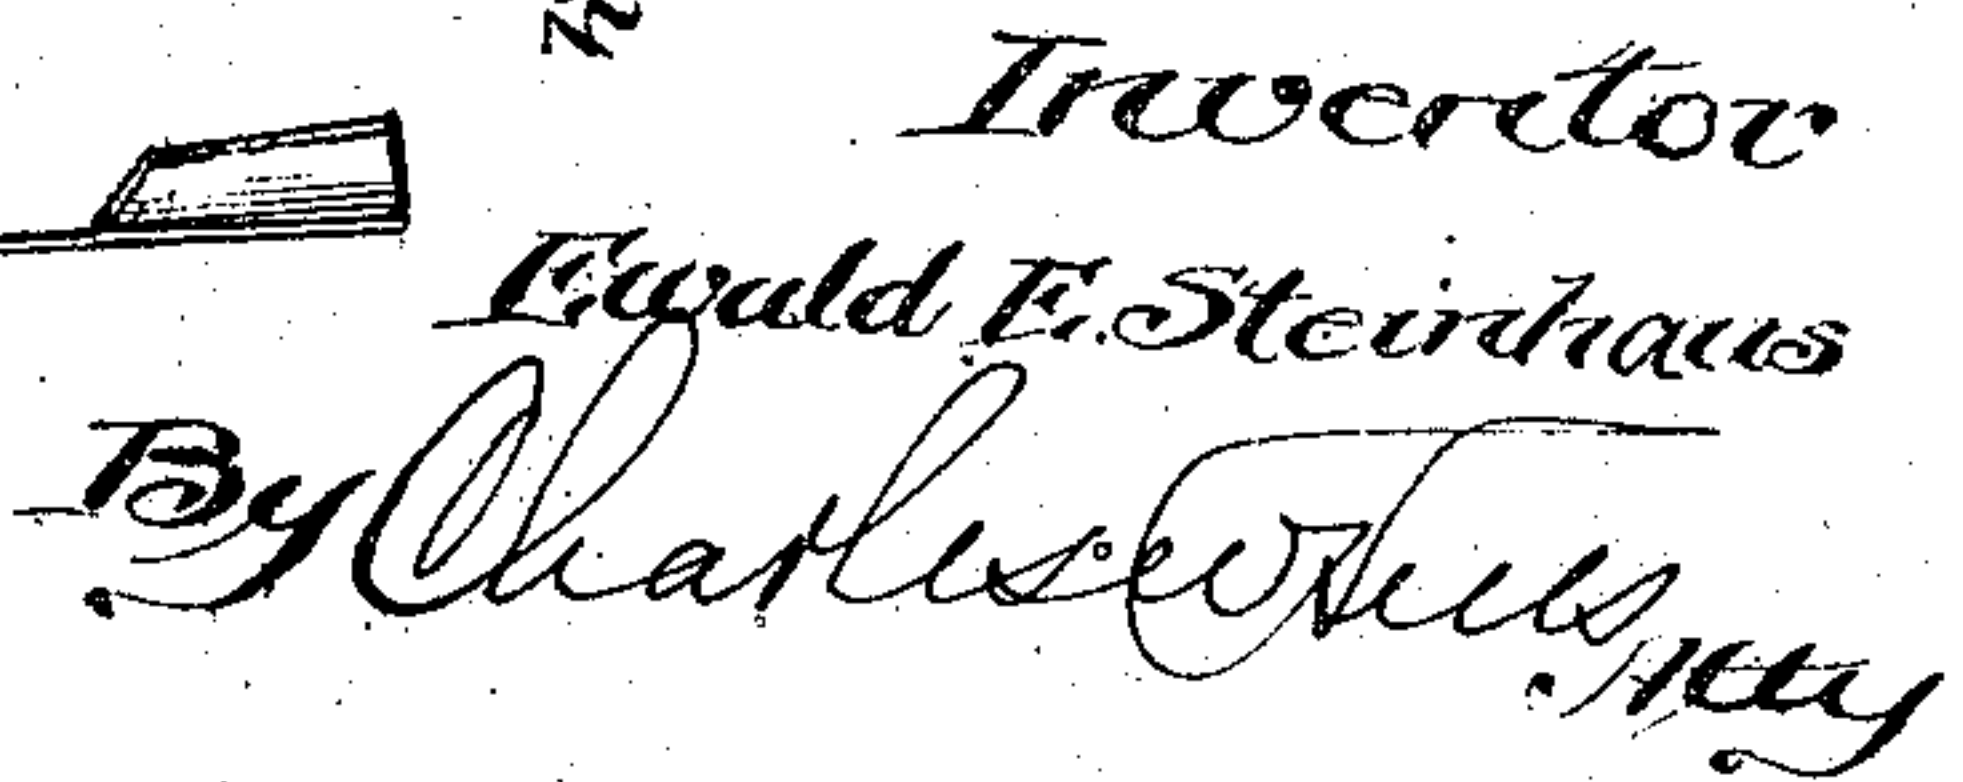 Inventor
Ewald E. Steinhaus
By Charles
Atty